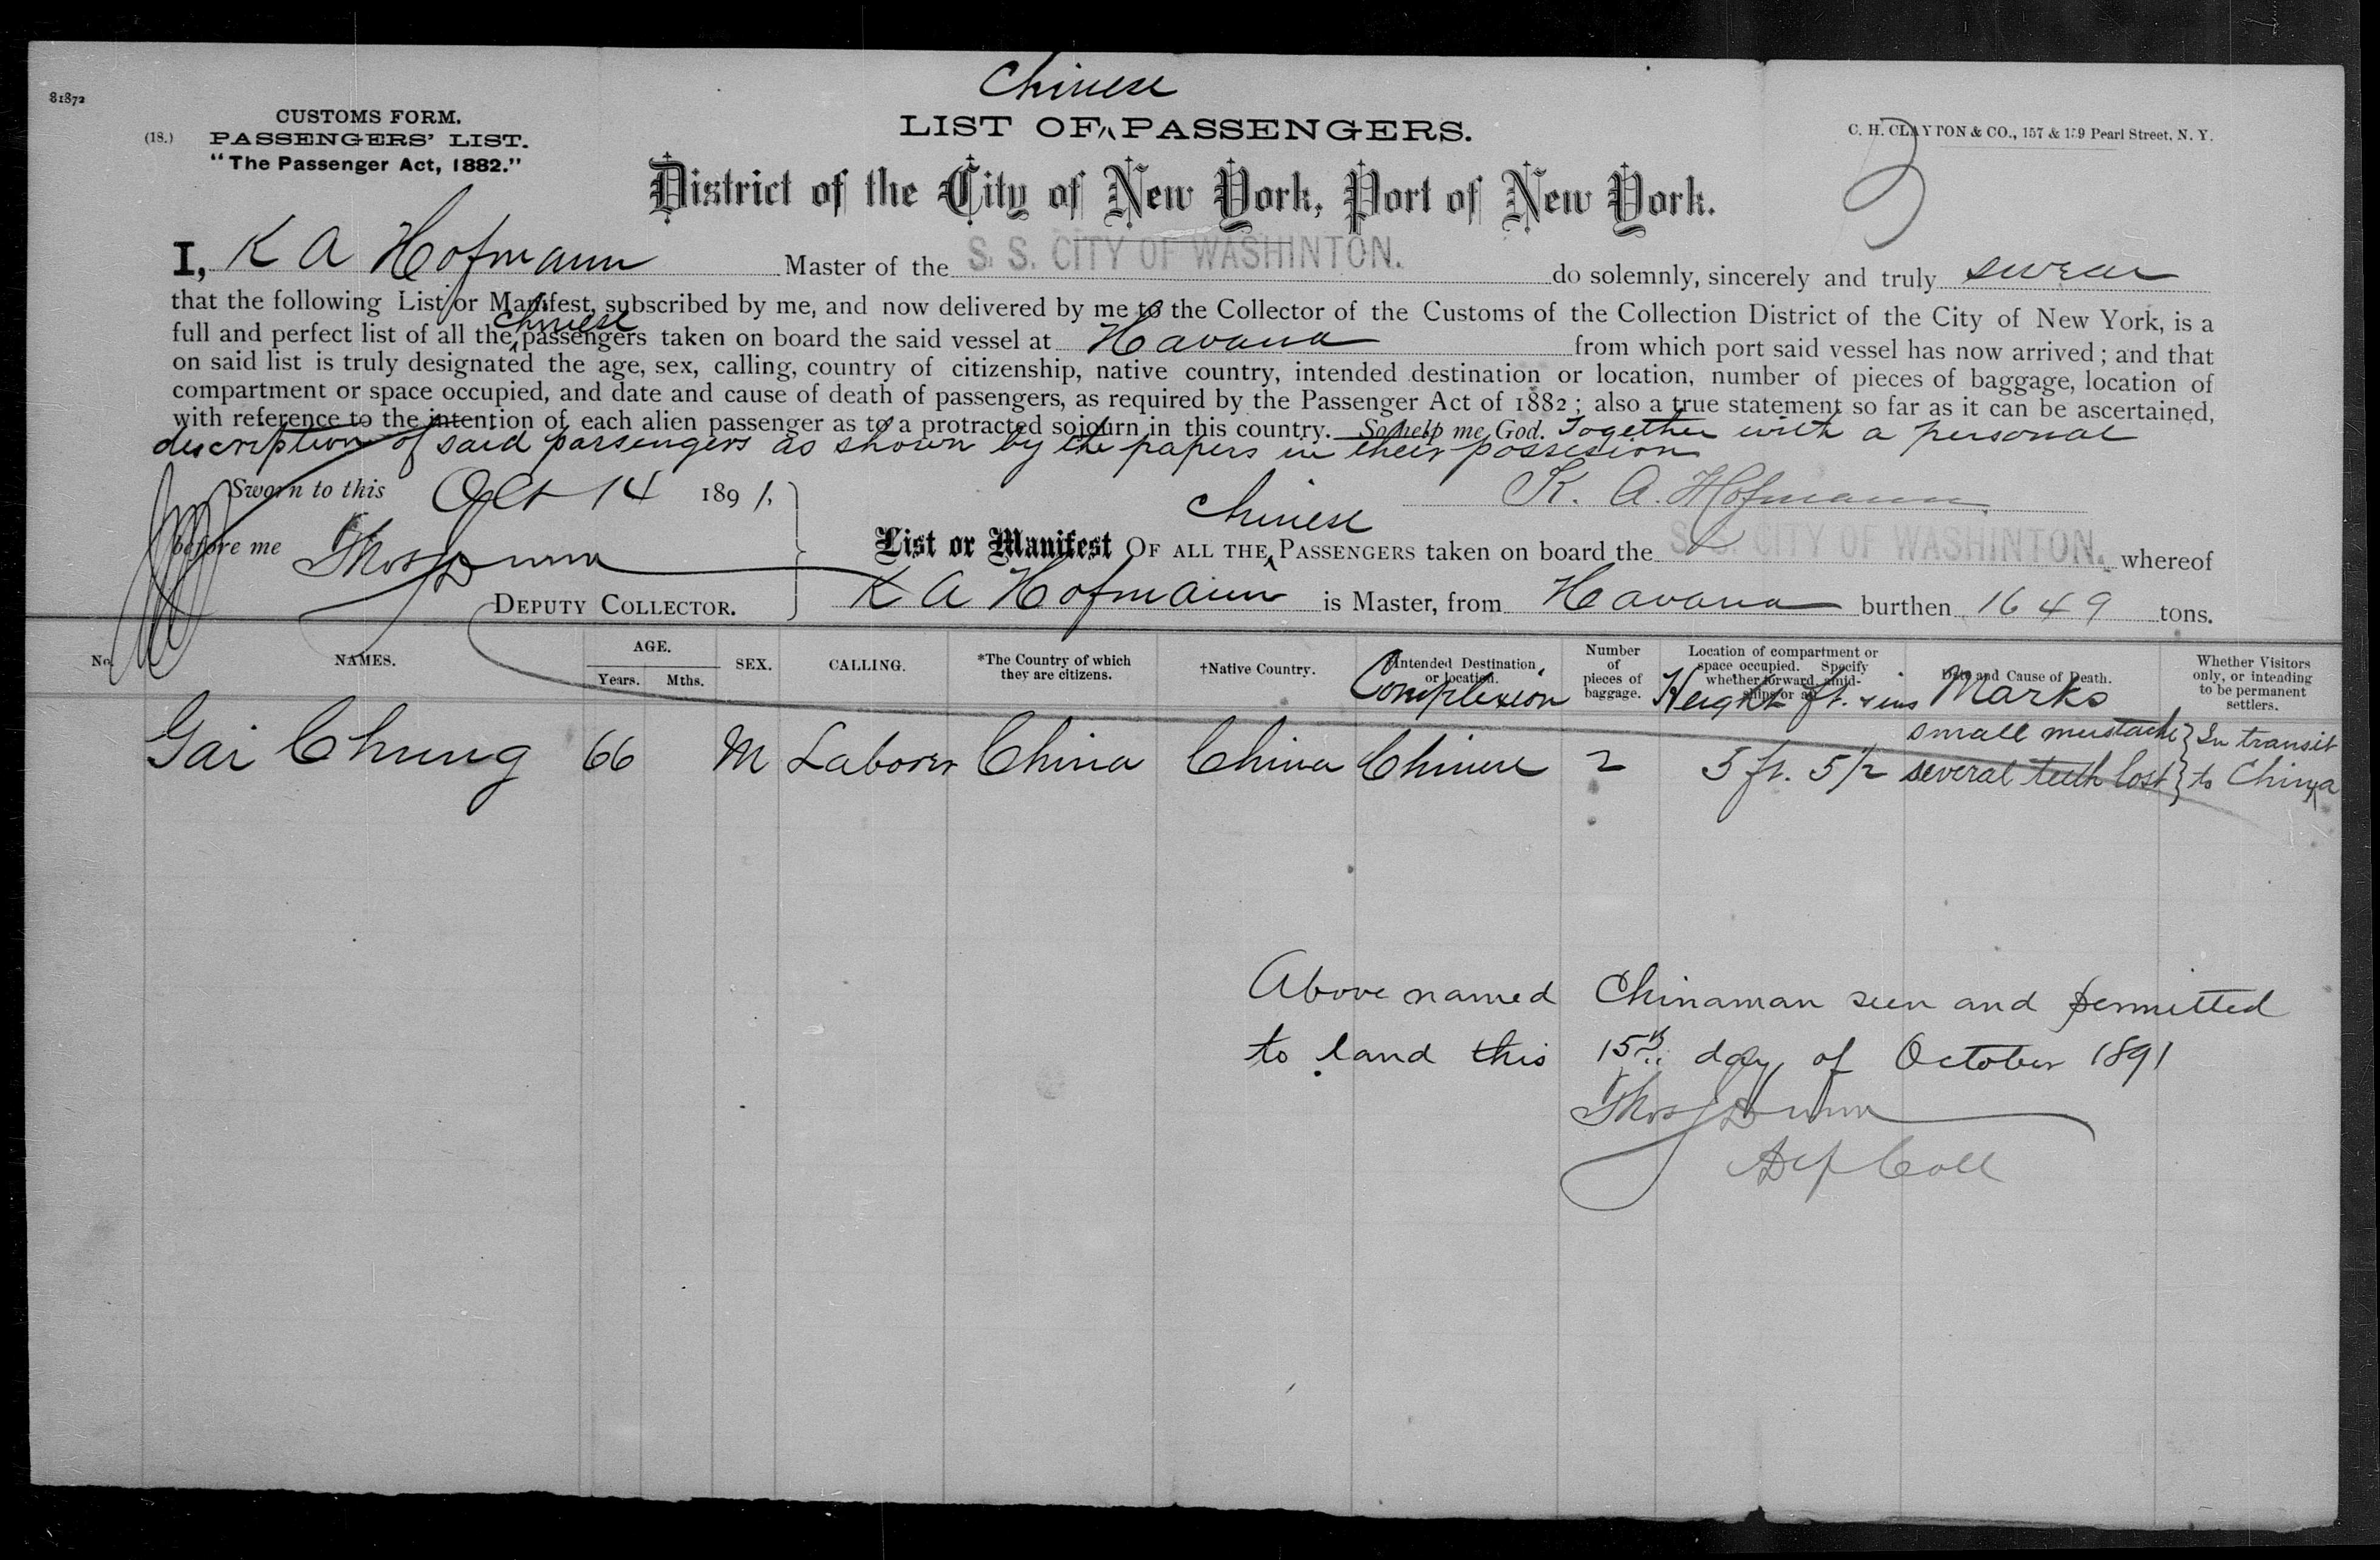 81872
Chinese
CUSTOMS FORM.
(18.) PASSENGERS' LIST.
"The Passenger Act, 1882."
LIST OF ^ PASSENGERS.
C. H. CLAYTON & CO., 157 & 159 Pearl Street, N. Y.
District of the City of New York, Port of New York.
I, K A Hofmann Master of the S. S. CITY OF WASHINTON. do solemnly, sincerely and truly swear
that the following List or Manifest, subscribed by me, and now delivered by me to the Collector of the Customs of the Collection District of the City of New York, is a
full and perfect list of all the ^ Chinese passengers taken on board the said vessel at Havana from which port said vessel has now arrived; and that
on said list is truly designated the age, sex, calling, country of citizenship, native country, intended destination or location, number of pieces of baggage, location of
compartment or space occupied, and date and cause of death of passengers, as required by the Passenger Act of 1882; also a true statement so far as it can be ascertained,
with reference to the intention of each alien passenger as to a protracted sojourn in this country. So help me God. Together with a personal
description of said passengers as shown by the papers in their possession
Sworn to this Oct 14 1891.
K. A. Hofmann
before me Thos J Dunn
DEPUTY COLLECTOR.
Chinese
List or Manifest OF ALL THE ^ PASSENGERS taken on board the S. S. CITY OF WASHINTON. whereof
K A Hofmann is Master, from Havana burthen 1649 tons.
No. NAMES. AGE. Years. Mths. SEX. CALLING. *The Country of which they are citizens. †Native Country. Intended Destination or location. Complexion Number of pieces of baggage. Location of compartment or space occupied. Specify whether forward, amidships or aft. Height ft. & ins Date and Cause of Death. Marks Whether Visitors only, or intending to be permanent settlers.
small mustache } In transit
Gai Chung 66 M Laborer China China Chinese 2 5 ft. 5 1/2 several teeth lost } to China
Above named Chinaman seen and permitted
to land this 15th day of October 1891
Thos J Dunn
Dep Coll